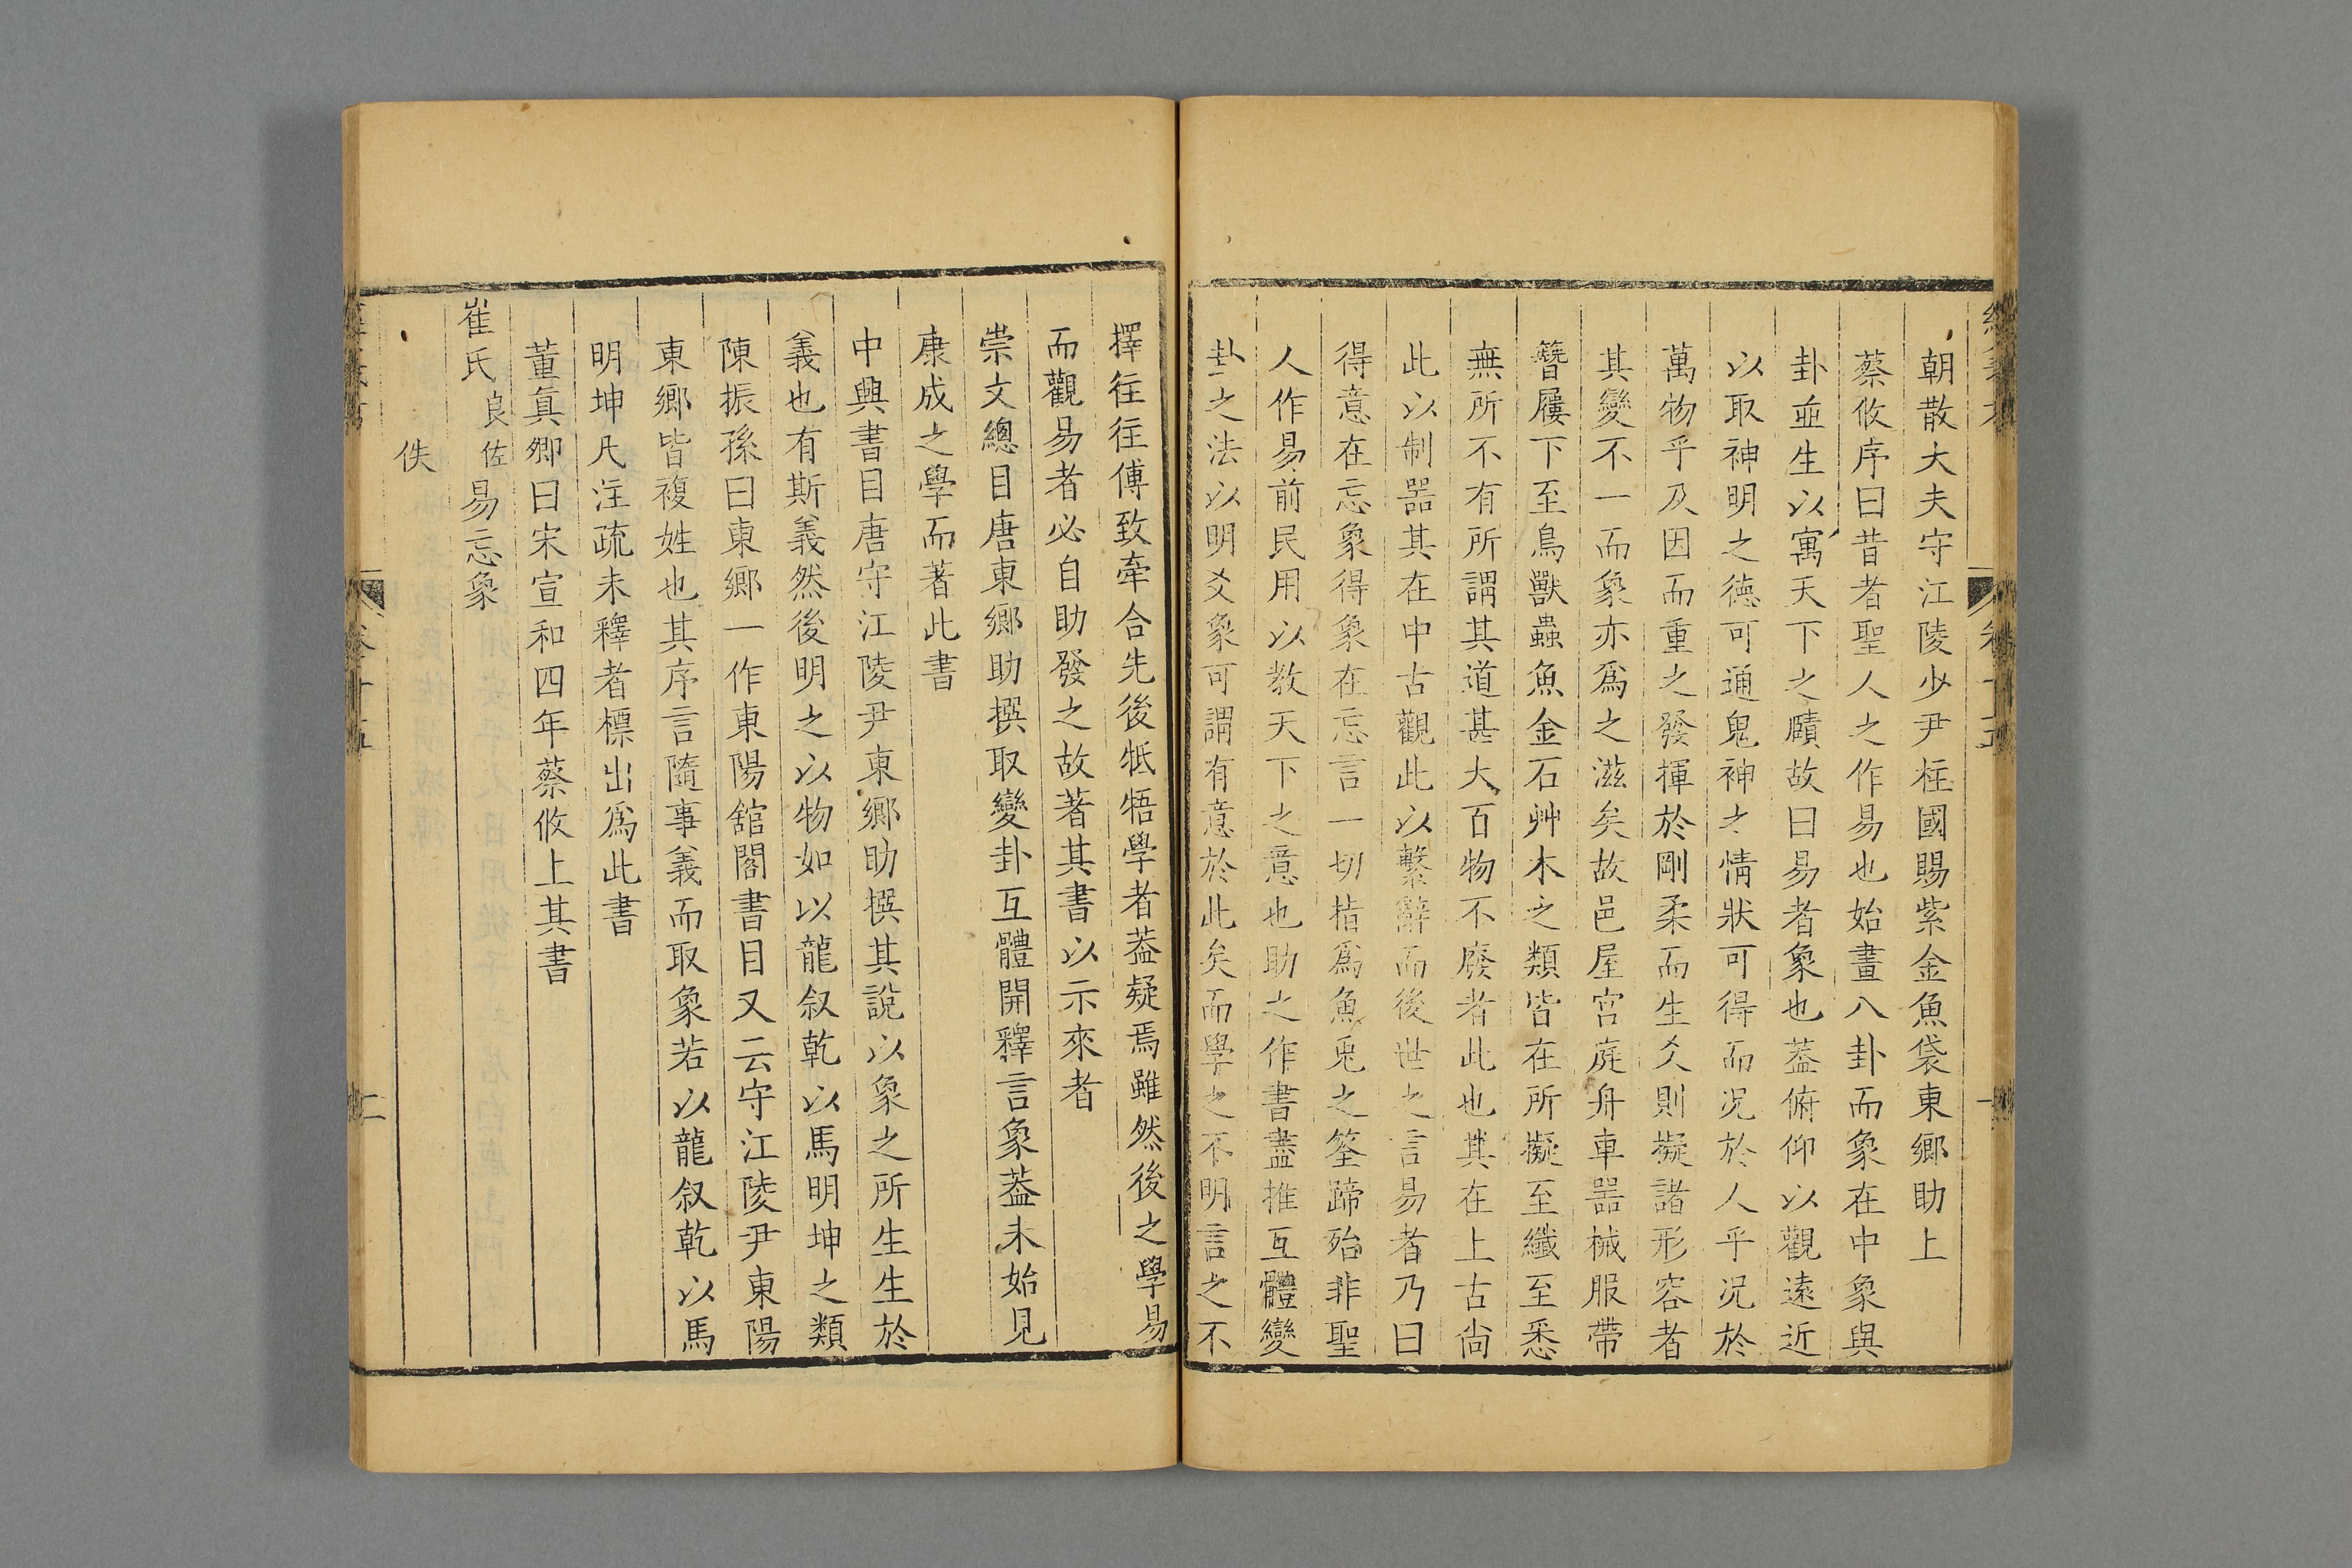 朝散大夫守江陵少尹柱國賜紫金魚袋東鄉助上
蔡攸序曰昔者聖人之作易也始畫八卦而象在中象與
卦竝生以寓天下之賾故曰易者象也葢俯仰以觀遠近
以取神明之德可通鬼神之情狀可得而況於人乎況於
萬物乎及因而重之發揮於剛柔而生爻則擬諸形容者
其變不一而象亦爲之滋矣故邑屋宮庭舟車噐械服帶
簪屨下至鳥獸蟲魚金石艸木之類皆在所擬至纖至悉
無所不有所謂其道甚大百物不廢者此也其在上古尙
此以制噐其在中古觀此以繫辭而後世之言易者乃曰
得意在忘象得象在忘言一切指爲魚兎之筌蹄殆非聖
人作易前民用以敎天下之意也助之作書盡推互體變
卦之法以明爻象可謂有意於此矣而學之不明言之不
擇往往傅致牽合先後牴牾學者葢疑焉雖然後之學易
而觀易者必自助發之故著其書以示來者
崇文總目唐東鄉助撰取變卦互體開釋言象葢未始見
康成之學而著此書
中興書目唐守江陵尹東鄉助撰其說以象之所生生於
義也有斯義然後明之以物如以龍叙乾以馬明坤之類
陳振孫曰東鄉一作東陽舘閣書目又云守江陵尹東陽
東鄉皆複姓也其序言隨事義而取象若以龍叙乾以馬
明坤凡注疏未釋者標出爲此書
董眞卿曰宋宣和四年蔡攸上其書
崔氏良佐易忘象
佚